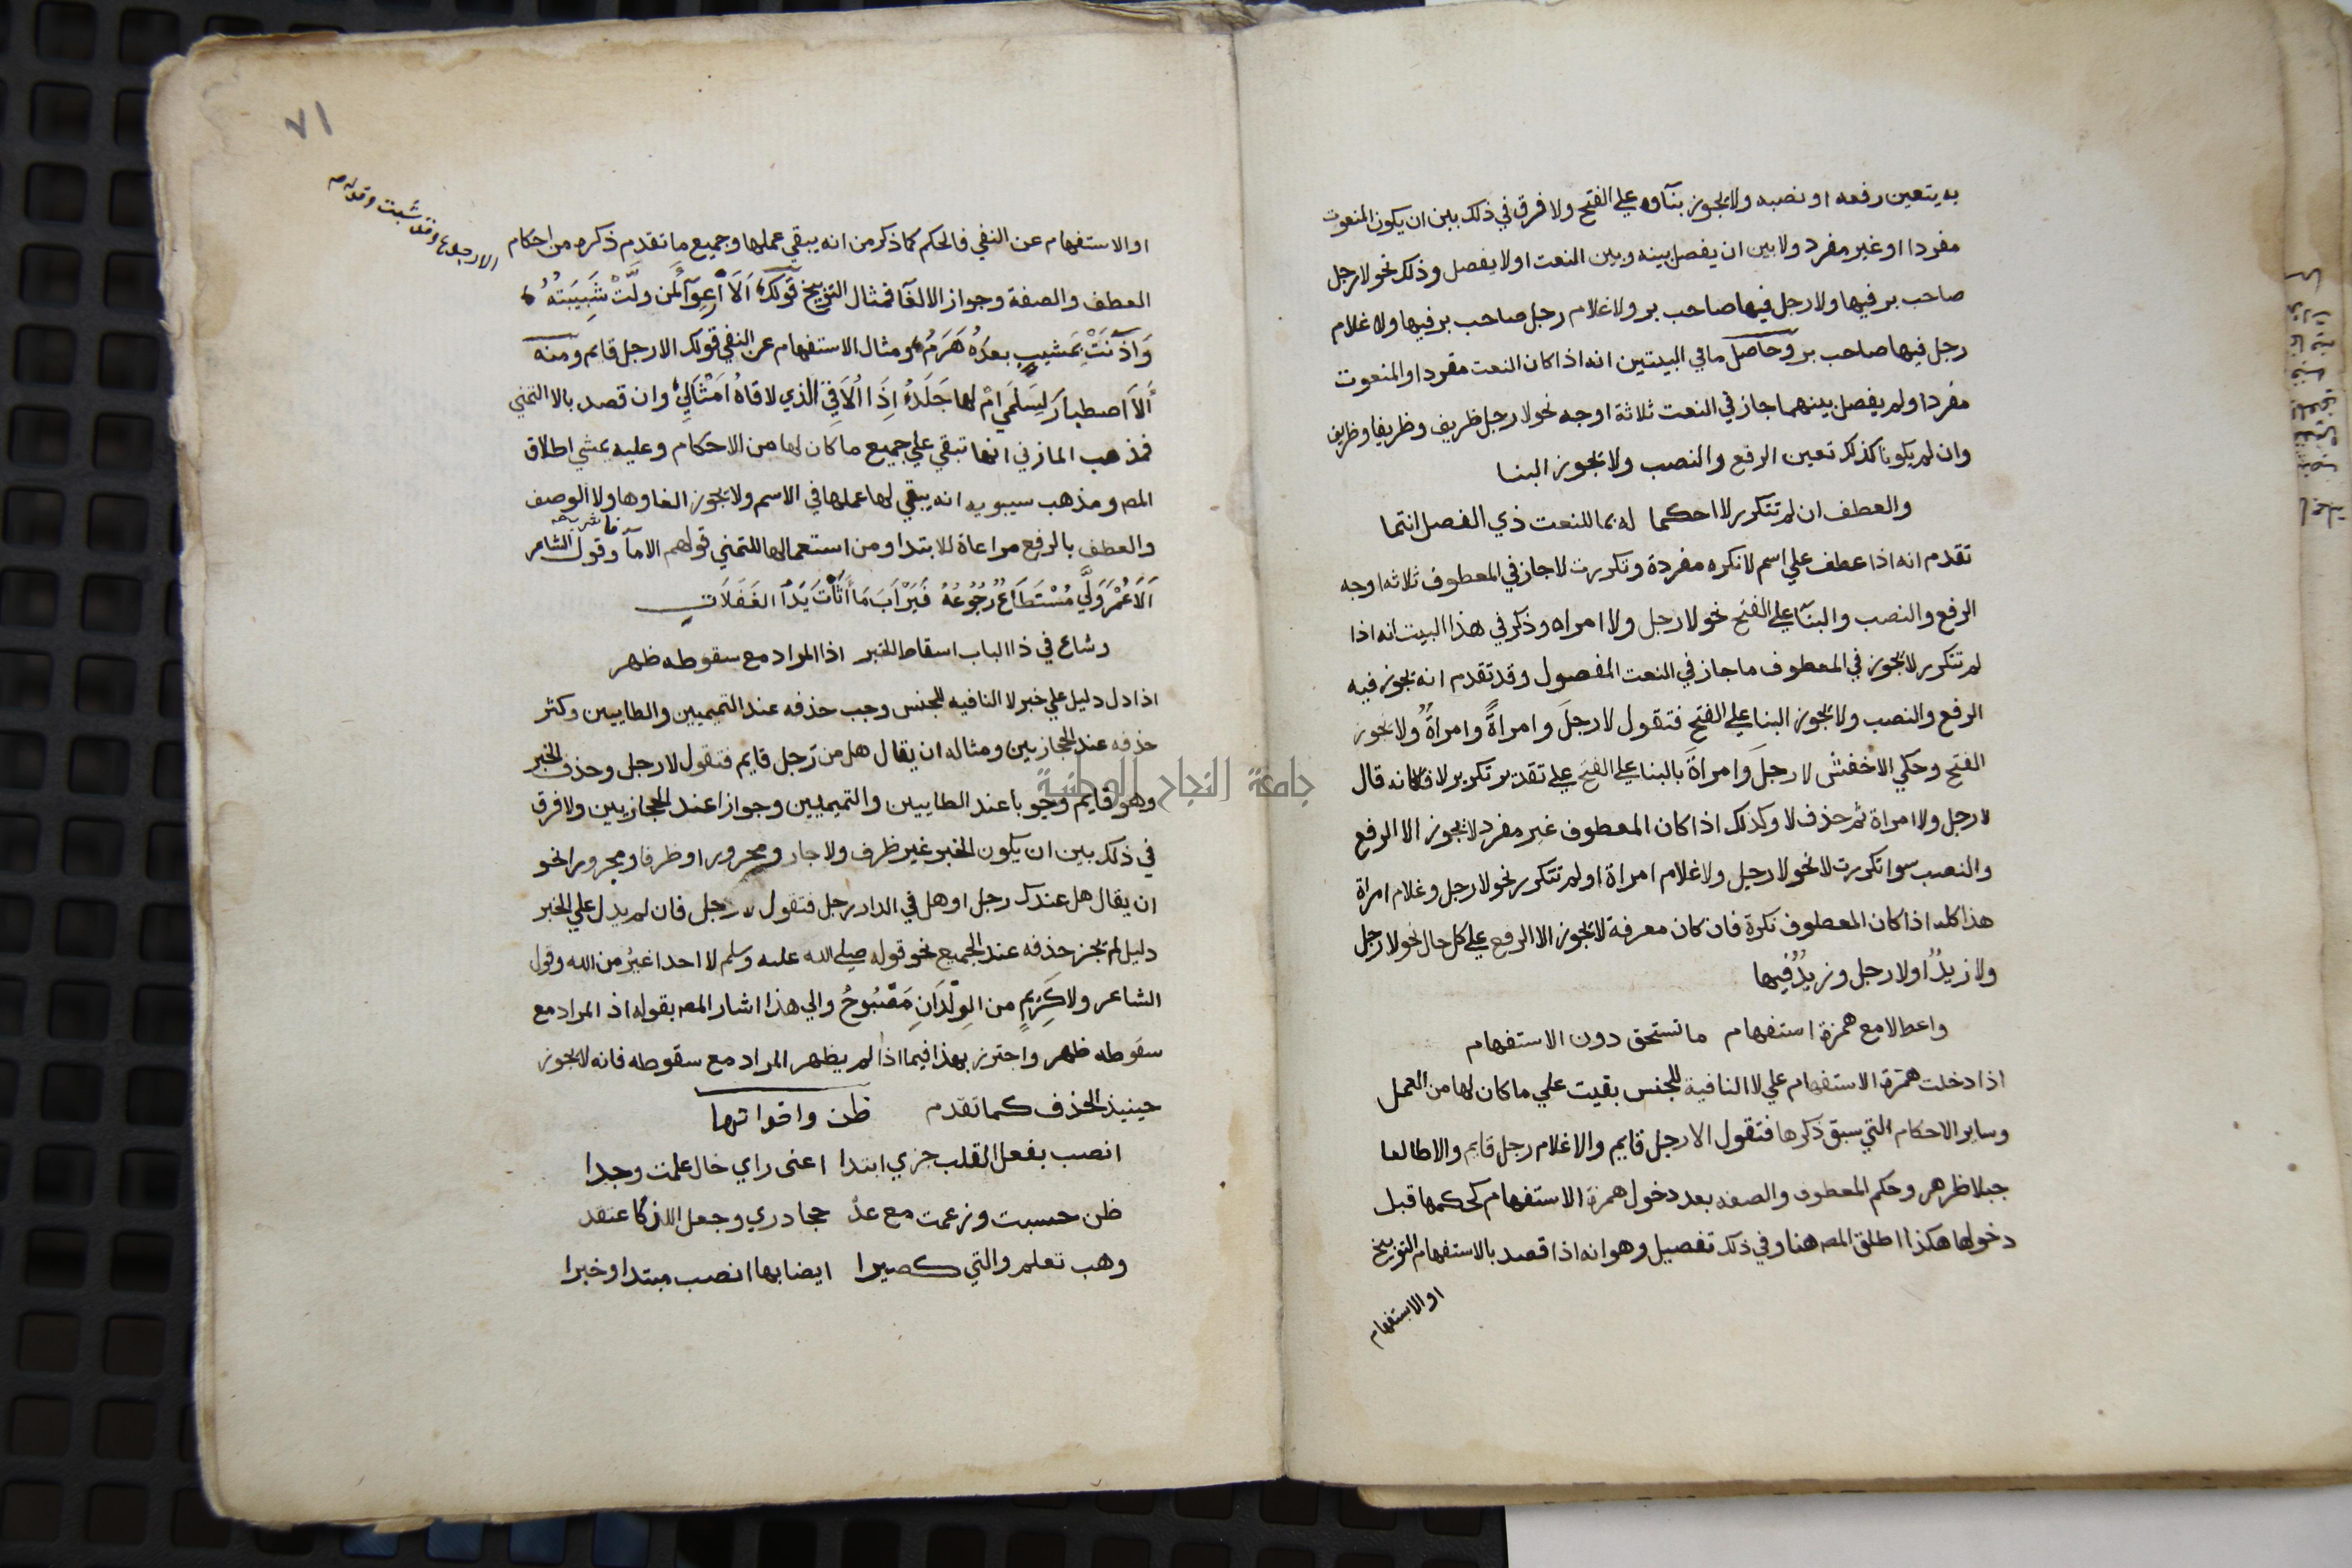 به يتعين رفعه او نصبه ولا يجوز بناوه علي الفتح ولا فرق في ذلك بين ان يكون المنعوت
مفردا او غير مفرد ولا بين ان يفصل بينه وبين النعت او لا يفصل وذلك نحو لا رجل
صاحب بر فيها ولا رجل فيها صاحب بر ولا غلام رجل صاحب بر فيها ولا غلام
رجل فيها صاحب بر وحاصل ما في البيتين انه اذا كان النعت مفردا والمنعوت
مفردا ولم يفصل بينهما جاز في النعت ثلاثة اوجه نحو لا رجل ظريف وظريفا وظريف
وان لم يكونا كذلك تعين الرفع والنصب ولا يجوز البنا
والعطف ان لم تتكرر لا احكما له بما للنعت ذي الفصل انتما
تقدم انه اذا عطف علي اسم لا نكره مفردة وتكررت لا جاز في المعطوف ثلاثه اوجه
الرفع والنصب والبنا علي الفتح نحو لا رجل ولا امراه وذكر في هذا البيت انه اذا
لم تتكرر لا يجوز في المعطوف ما جاز في النعت المفصول وقد تقدم انه يجوز فيه
الرفع والنصب ولا يجوز البنا علي الفتح فتقول لا رجلَ وامراةً وامراةٌ ولا يجوز
الفتح وحكي الاخفش لا رجلَ وامراةَ بالبنا علي الفتح علي تقدير تكرير لا فكانه قال
لا رجل ولا امراة ثم حذف لا وكذلك اذا كان المعطوف غير مفرد لا يجوز الا الرفع
والنصب سوا تكررت لا نحو لا رجل ولا غلام امراة او لم تتكرر نحو لا رجل وغلام امراة
هذا كله اذا كان المعطوف نكرة فان كان معرفة لا يجوز الا الرفع علي كل حال نحو لا رجل
ولا زيدٌ او لا رجل وزيدٌ فيها
واعط لا مع همزة استفهام ما تستحق دون الاستفهام
اذا دخلت همزة الاستفهام علي لا النافية للجنس بقيت علي ما كان لها من العمل
وساير الاحكام التي سبق ذكرها فتقول الا رجل قايم والا غلام رجل قايم والا طالعا
جبلا ظرهر وحكم المعطوف والصفه بعد دخول همزة الاستفهام كحكمها قبل
دخولها هكذا اطلق المص هنا وفي ذلك تفصيل وهو انه اذا قصد بالاستفهام التوبيخ
او الاستفهام
٧١
او الاستفهام عن النفي فالحكم كما ذكر من انه يبقي عملها وجميع ما تقدم ذكره من احكام
العطف والصفة وجواز الالغا فمثال التوبيخ قولك الا رجوع وقد شبت وقوله
اَلَا اَرْعِوَآءَ لمن ولَّتْ شَبِيبَتُهُ
وَآذَنَتْ بِمَشِيبٍ بعدَهُ هَرَمُ ومثال الاستفهام عن النفي قولك الا رجل قايم ومنه
اَلَا اصطبارَ لِسَلْمَي اَمْ لها جَلَدٌ اِذَا اُلَاقِي الذي لاقاهُ اَمْثَالِي وان قصد بالا التمني
فمذهب المازني انها تبقي علي جميع ما كان لها من الاحكام وعليه يمشي اطلاق
المص ومذهب سيبويه انه يبقي لها عملها في الاسم ولا يجوز الغاوها ولا الوصف
والعطف بالرفع مراعاة للابتدا ومن استعمالها للتمني قولهم الا مآ وقول الشاعر
اَلَا عُمْرَ وَلَّي مُسْتَطَاعٌ رُجُوعُهُ فَيَرْأَبَ مَا أَثْأَتْ يَدُ الغَفَلَاتِ
وشاع في ذا الباب اسقاط الخبر اذا المراد مع سقوطه ظهر
اذا دل دليل علي خبر لا النافيه للجنس وجب حذفه عند التميميين والطاييين وكثر
حذفه عند الحجازيين ومثاله ان يقال هل من رجل قايم فتقول لا رجل وحذف الخبر
وهو قايم وجوبا عند الطاييين والتميميين وجوازا عند الحجازيين ولا فرق
في ذلك بين ان يكون الخبر غير ظرف ولا جار ومجرور او ظرفا او مجرورا نحو
ان يقال هل عندك رجل او هل في الدار رجل فتقول لا رجل فان لم يدل علي الخبر
دليل لم يجز حذفه عند الجميع نحو قوله صلي الله عليه وسلم لا احد اغير من الله وقول
الشاعر ولا كَرِيمٍ من الوِلْدَانِ مَصْبُوحُ والي هذا اشار المص بقوله اذ المراد مع
سقوطه ظهر واحترز بهذا فيما اذا لم يظهر المراد مع سقوطه فانه لا يجوز
حينيذ الحذف كما تقدم ظن واخواتها
انصب بفعل القلب جزي ابتدا اعني راي خال علمت وجدا
ظن حسبت وزعمت مع عدّ حجا دري وجعل اللذ كاعتقد
وهب تعلم والتي كصيرا ايضا بها انصب مبتدا وخبرا
جامعة النجاح الوطنية